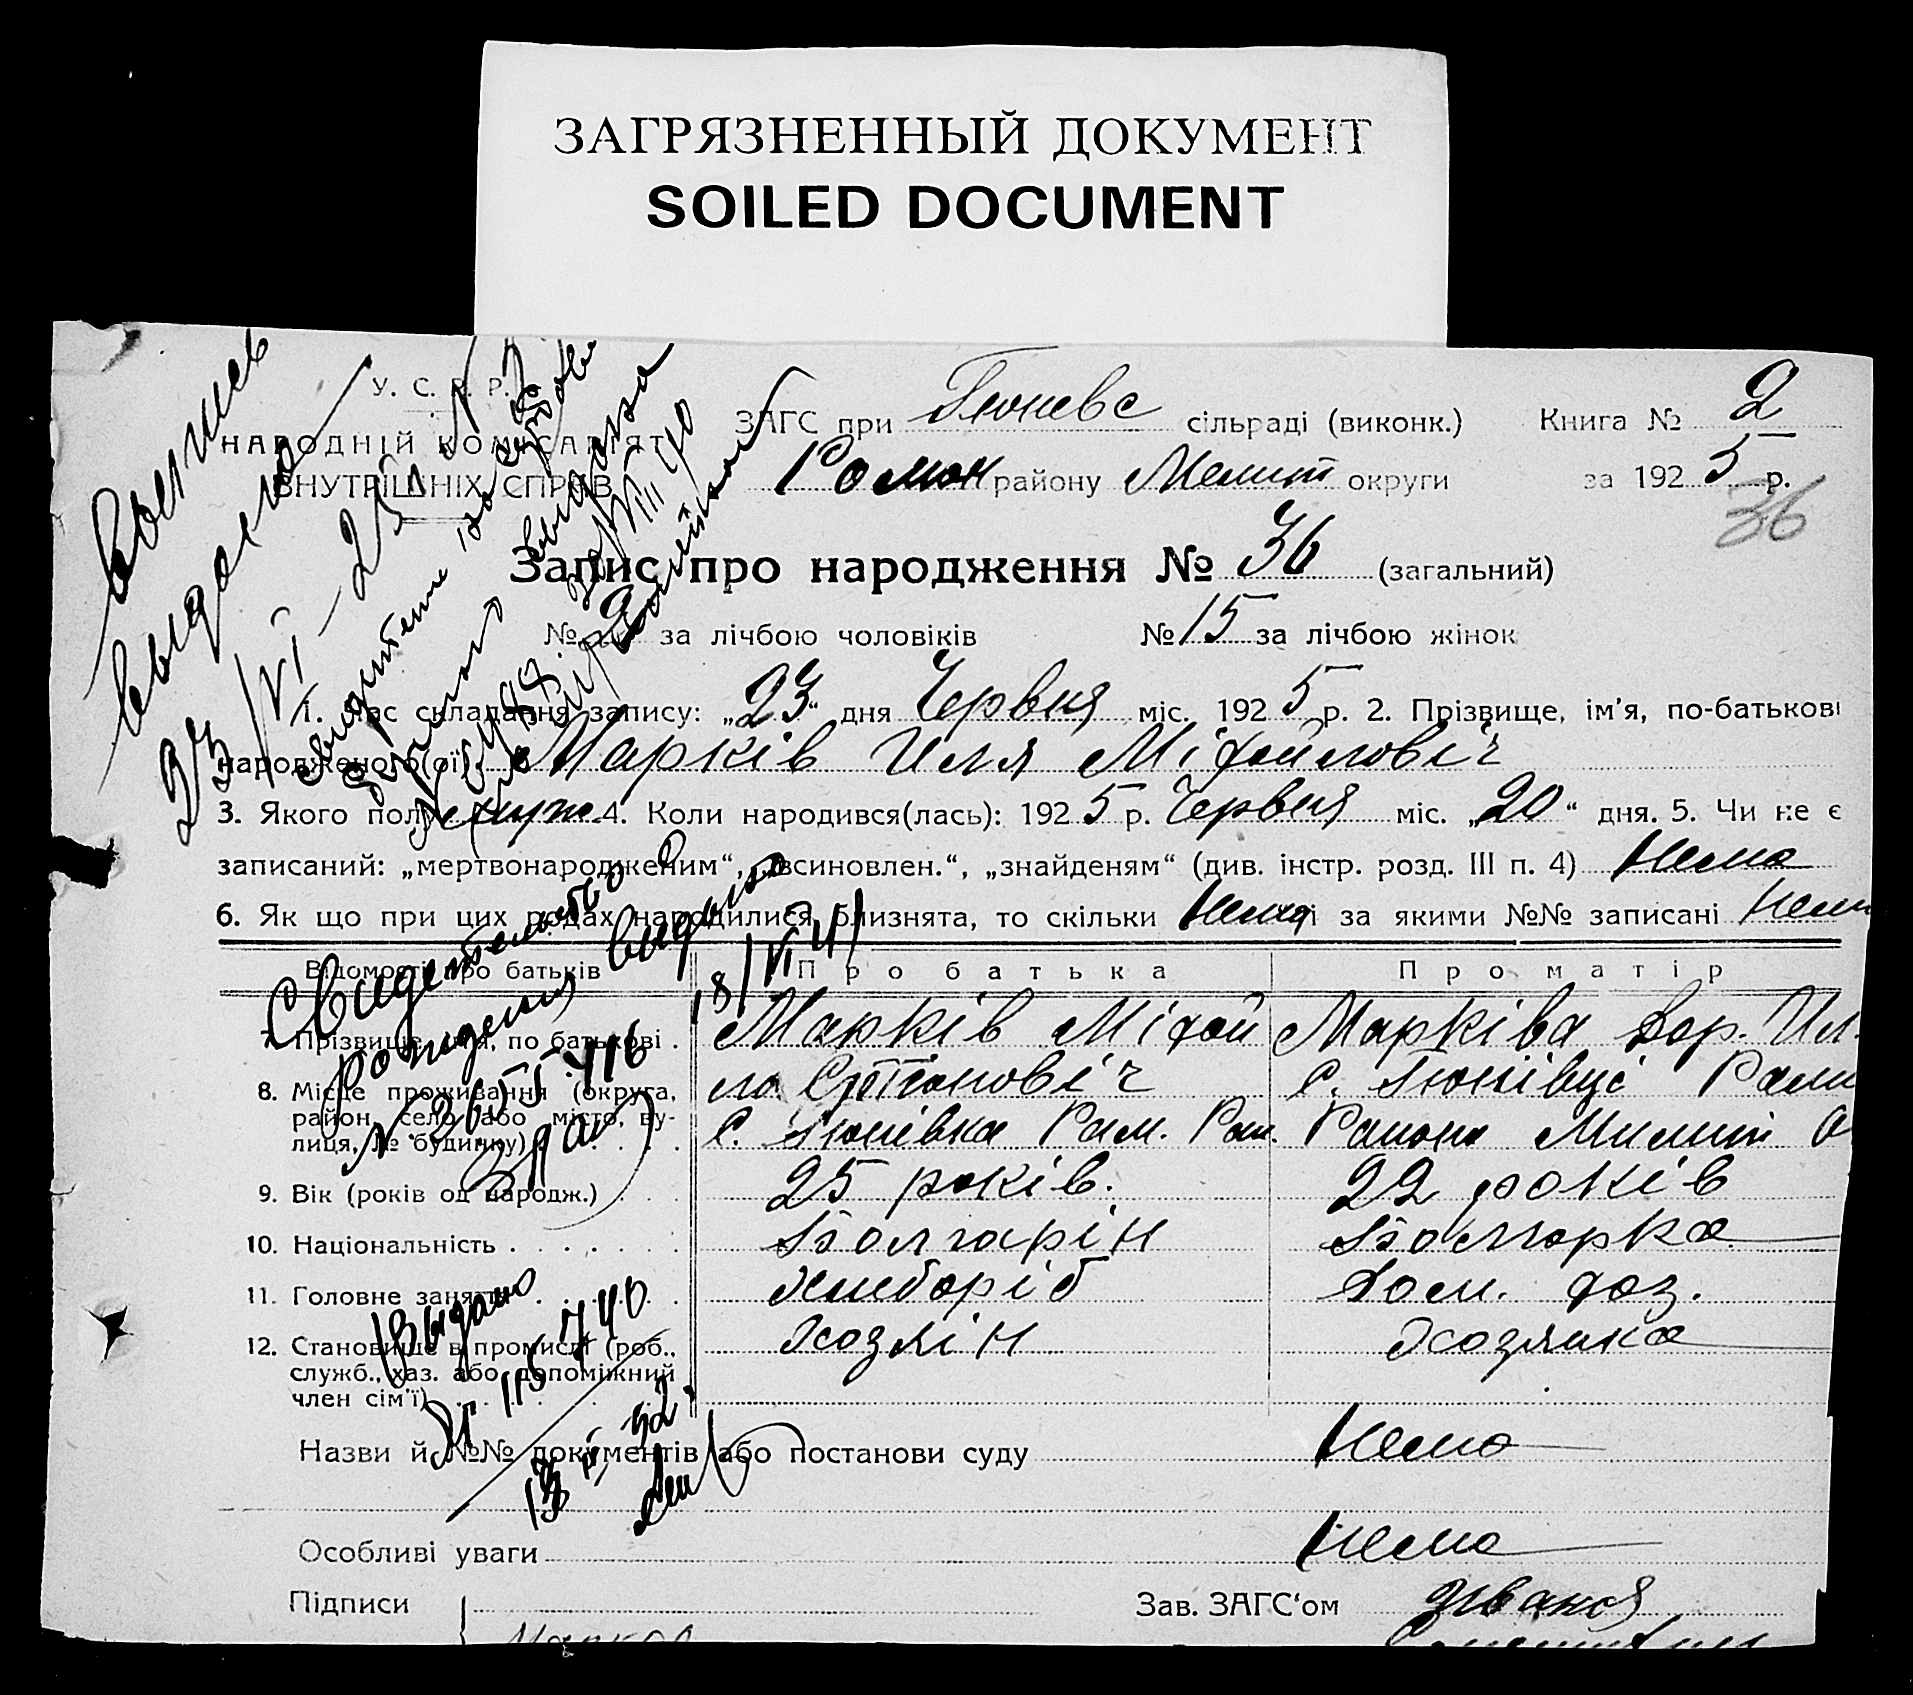 ЗАГРЯЗНЕННЫЙ ДОКУМЕНТ
SOILED DOCUMENT
У. С. Р. Р.
НАРОДНІЙ КОМІСАРІЯТ
ВНУТРІШНІХ СПРАВ
ЗАГС при Гюневс сільраді (виконк.) Книга № 2
Ромон району Мелит округи за 192 5 р.
36
Запис про народження № 36 (загальний)
№ 2 за лічбою чоловіків № 15 за лічбою жінок
1. Час складання запису: „23“ дня Червня міс. 192 5 р. 2. Прізвище, ім'я, по-батькові
народженого(ої) Марків Илля Міхайловіч
3. Якого полу муж. 4. Коли народився(лась): 192 5 р. Червня міс. „20“ дня. 5. Чи не є
записаний: „мертвонародженим“, „всиновлен.“, „знайденям“ (див. інстр. розд. III п. 4) Нема
6. Як що при цих родах народилися близнята, то скільки Нема і за якими №№ записані Нема
Відомості про батьків Про батька Про матір
7. Прізвище, ім'я, по батькові . Марків Міхай Марківа Дор. Ил.
8. Місце проживання (округа, ло Степановіч с. Гюнівці Ром
район, село або місто, ву- с. Гюнівка Ром. Рай. Района Мелит О
лиця, № будинку)
9. Вік (років од народж.) 25 років. 22 років
10. Національність Болгарін Болгарка
11. Головне заняття Хлиборіб Дом. хоз.
12. Становище в промислі (роб., Хозяін Хозяика
служб., хаз. або допоміжний
член сім'ї)
Назви й №№ документів або постанови суду Нема
Особливі уваги Нема
Підписи Зав. ЗАГС'ом
выдано
23/VI-25
Свидетельство о
рождения выдано
18/VI 41
Выдано